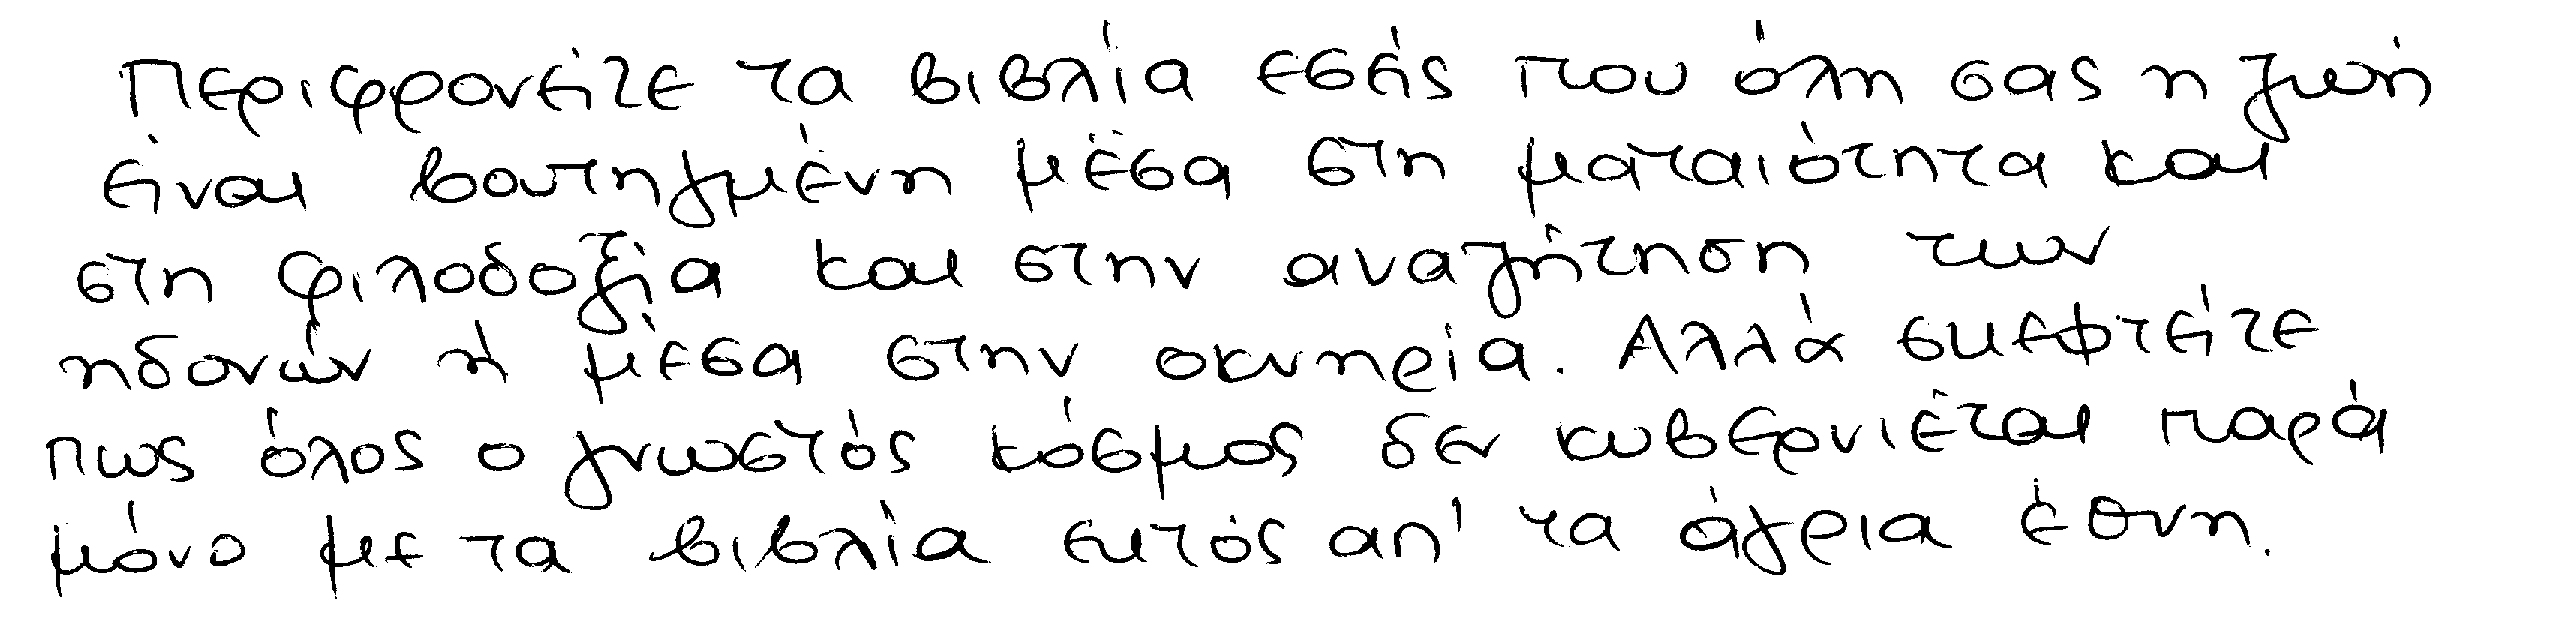 Περιφρονείτε τα βιβλία εσείς που όλη σας η ζωή
είναι βουτηγμένη μέσα στη ματαιότητα και
στη φιλοδοξία και στην αναζήτηση των
ηδονών ή μέσα στην οκνηρία. Αλλά σκεφτείτε
πως όλος ο γνωστός κόσμος δεν κυβερνιέται παρά
μόνο με τα βιβλία εκτός απ' τα άγρια έθνη.